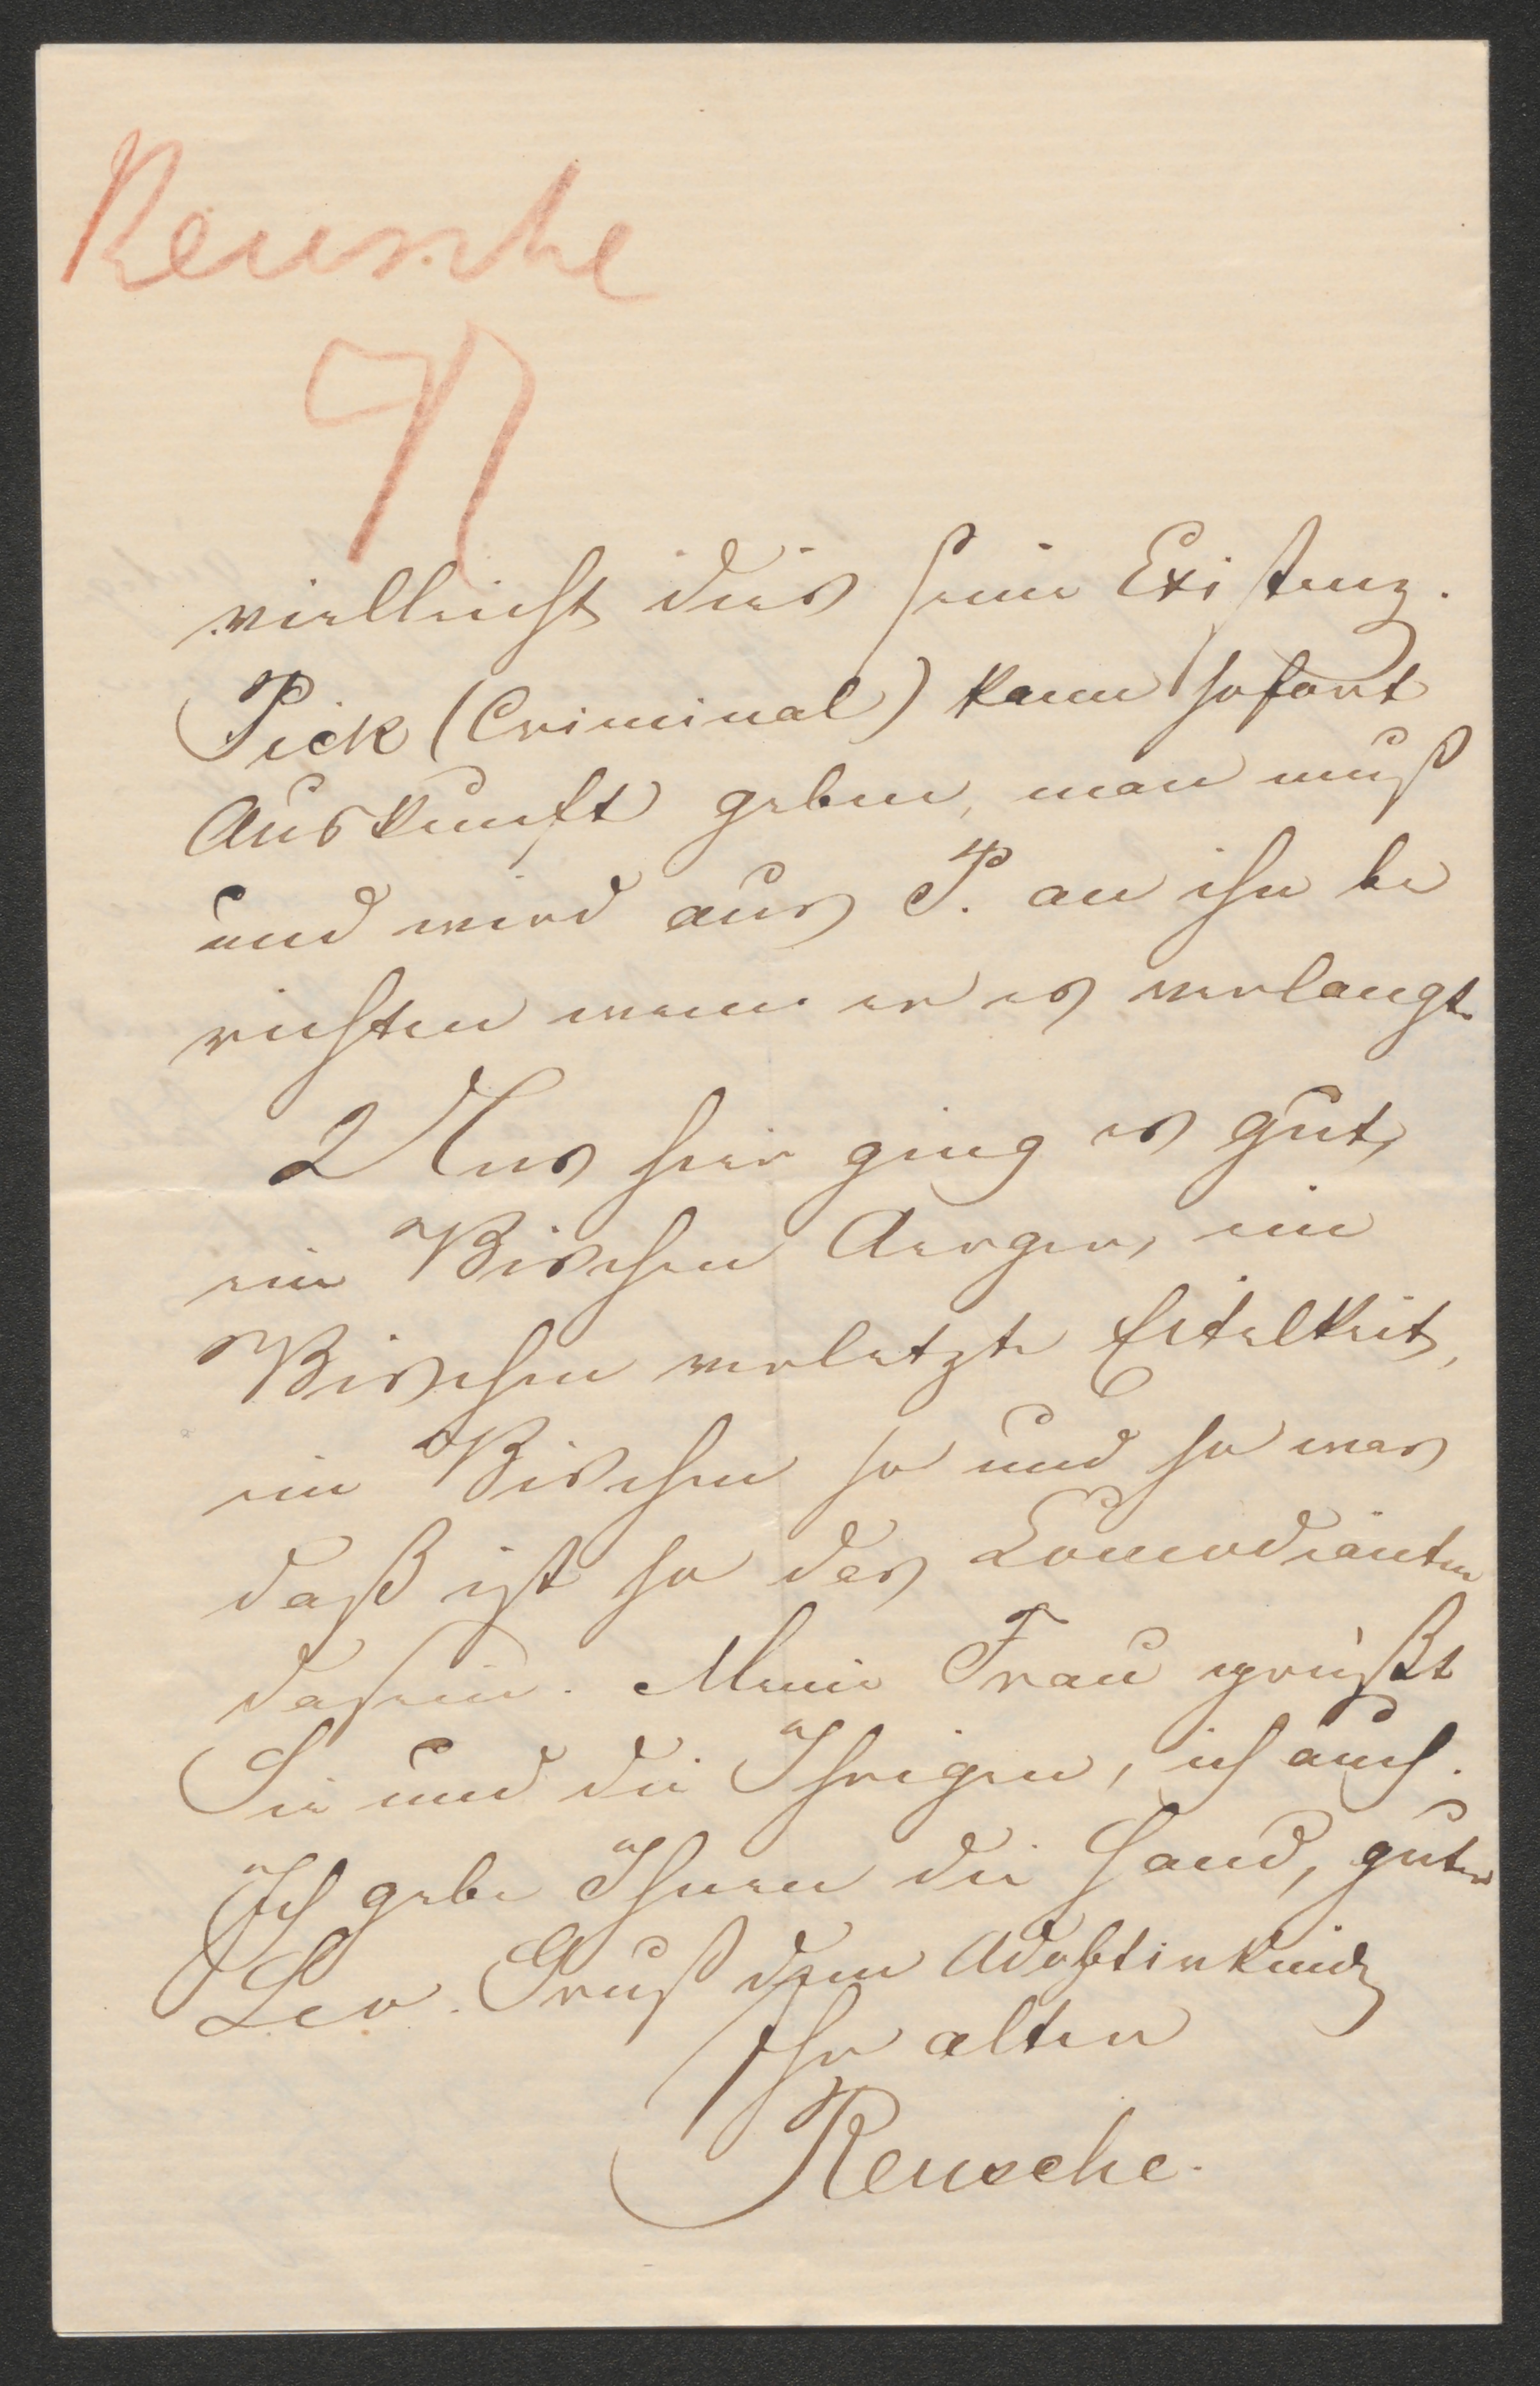 Reusche
vielleicht dies seine Existenz.
Pick (Criminal) kann sofort
Auskunft geben, man muß
und wird aus P. an ihn be
richten wenn er es verlangt.
Uns hier ging es gut,
ein Bischen Aerger, ein
Bischen verletzte Eitelkeit,
ein Bischen so und so was
daß ist so das Comödianten
dasein. Meine Frau grüßt
Sie und die Ihrigen, ich auch.
Ich gebe Ihnen die Hand, guter
Leo. Gruß dem Adoptivkind
Ihr alter
Reusche.